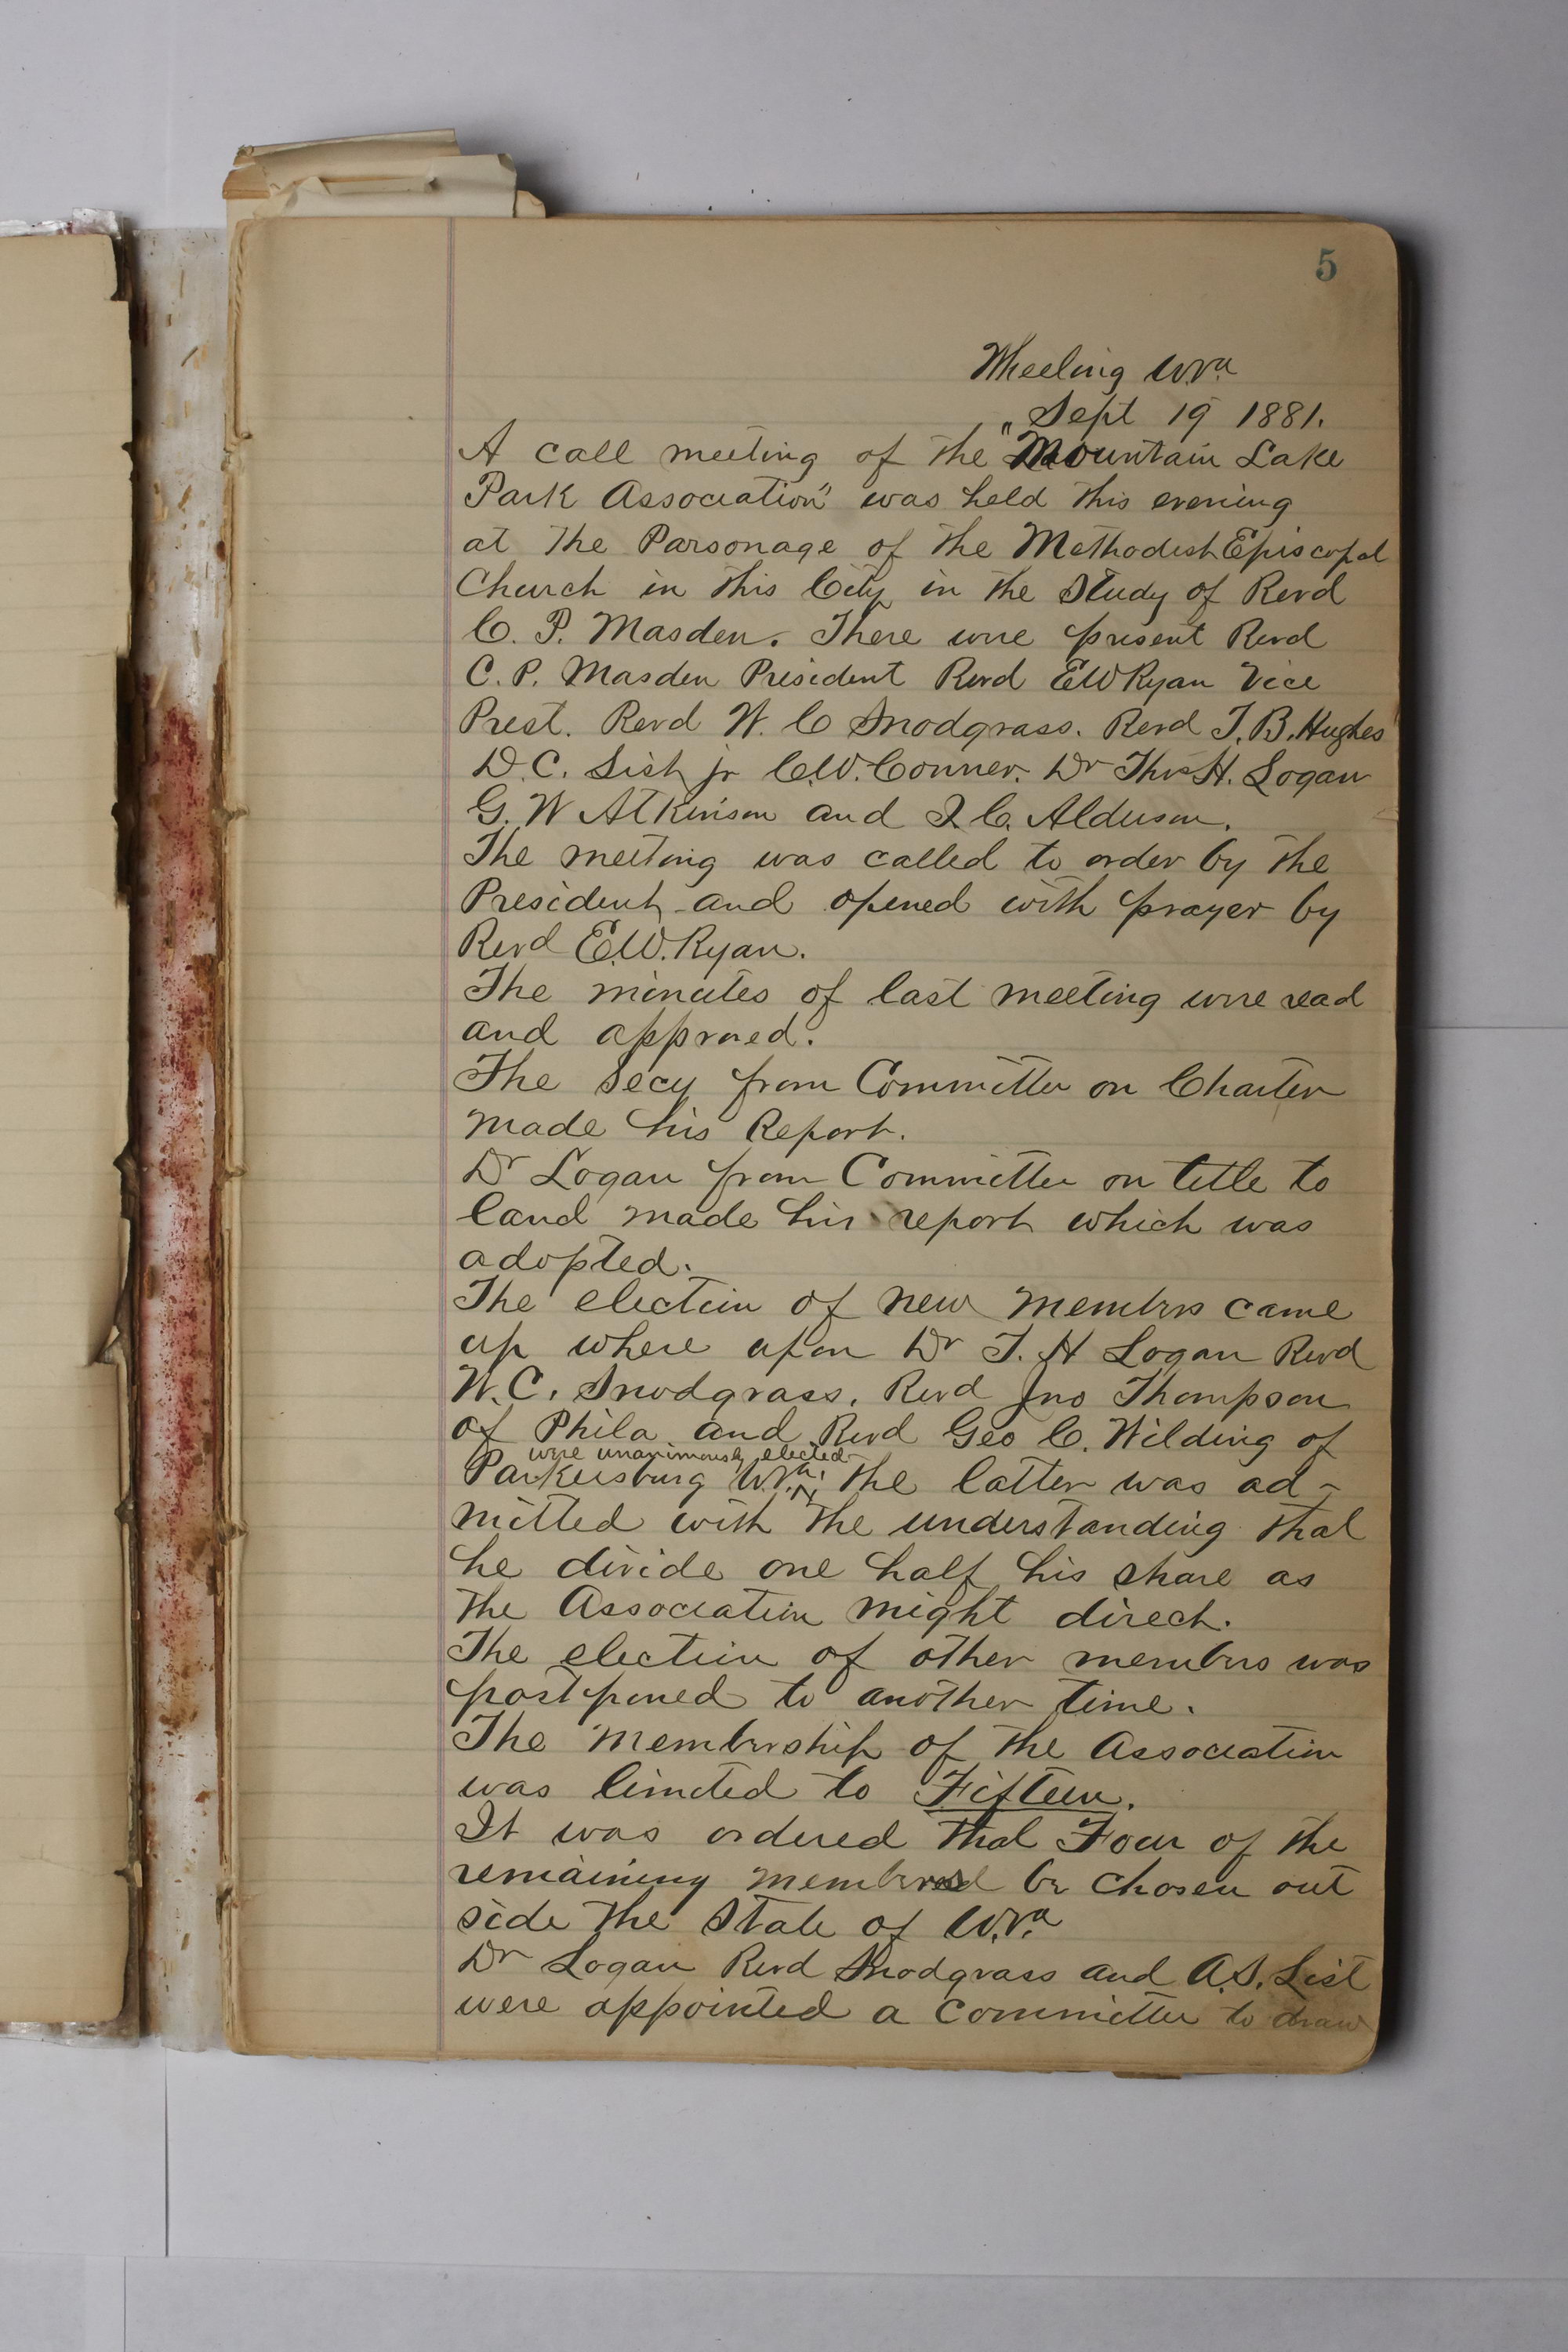 5
Wheeling W.Va
Sept 19 1881.
A call meeting of the "Mountain Lake
Park Association" was held this evening
at the Parsonage of the Methodist Episcopal
Church in this City in the Study of Revd
C. P. Masden. There were present Revd
C. P. Masden President Revd E W Ryan Vice
Prest. Revd W. C Snodgrass. Revd J. B. Hughes
D. C. List jr C. W. Conner. Dr Thos H. Logan
G. W Atkinson and J. C. Alderson.
The meeting was called to order by the
President and opened with prayer by
Revd E. W. Ryan.
The minutes of last meeting were read
and approved.
The Secy from Committee on Charter
made his Report.
Dr Logan from Committee on title to
land made his report which was
adopted.
The election of new members came
up where upon Dr T. H Logan Revd
W. C. Snodgrass, Revd Jno Thompson
of Phila and Revd Geo C. Wilding of
were unanimously elected
Parkersburg W.Va. the latter was ad-
mitted with the understanding that
he divide one half his share as
the Association might direct.
The election of other members was
postponed to another time.
The membership of the Association
was limited to Fifteen.
It was ordered that Four of the
remaining members be chosen out
side the State of W.Va
Dr Logan Revd Snodgrass and A. S. List
were appointed a Committee to draw